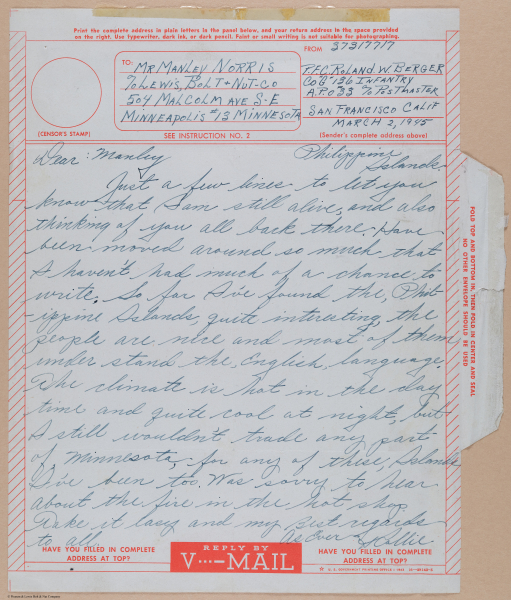 Print the complete address in plain letters in the panel below, and your return address in the space provided
on the right. Use typewriter, dark ink, or dark pencil. Faint or small writing is not suitable for photographing.
FROM 37317717
TO:
MR MANLEY NORRIS
% LEWIS, BOLT + NUT-CO
504 MALCOLM AVE S.E
MINNEAPOLIS #13 MINNESOTA
P.F.C. ROLAND W BERGER
CO G 136 INFANTRY
A.P.O 33 % POSTMASTER
SAN FRANCISCO CALIF
MARCH 2, 1945
(CENSOR'S STAMP)
SEE INSTRUCTION NO. 2
(Sender's complete address above)
Philippine
Islands
Dear: Manley
Just a few lines to let you
know that I am still alive, and also
thinking of you all back there. Have
been moved around so much that
I haven't had much of a chance to
write. So far I've found the, Phil-
ippine Islands, quite interesting, the
people are nice and most of them
under stand the, English, language.
The climate is hot in the day
time and quite cool at night, but
I still wouldn't trade any part
of Minnesota, for any of these, Islands
I've been too. Was sorry to hear
about the fire in the hot shop
Take it easy and my best regards
to all.
As Ever Rollie
HAVE YOU FILLED IN COMPLETE
ADDRESS AT TOP?
REPLY BY
V···—MAIL
HAVE YOU FILLED IN COMPLETE
ADDRESS AT TOP?
U. S. GOVERNMENT PRINTING OFFICE
FOLD TOP AND BOTTOM IN, THEN FOLD IN CENTER AND SEAL
NO OTHER ENVELOPE SHOULD BE USED